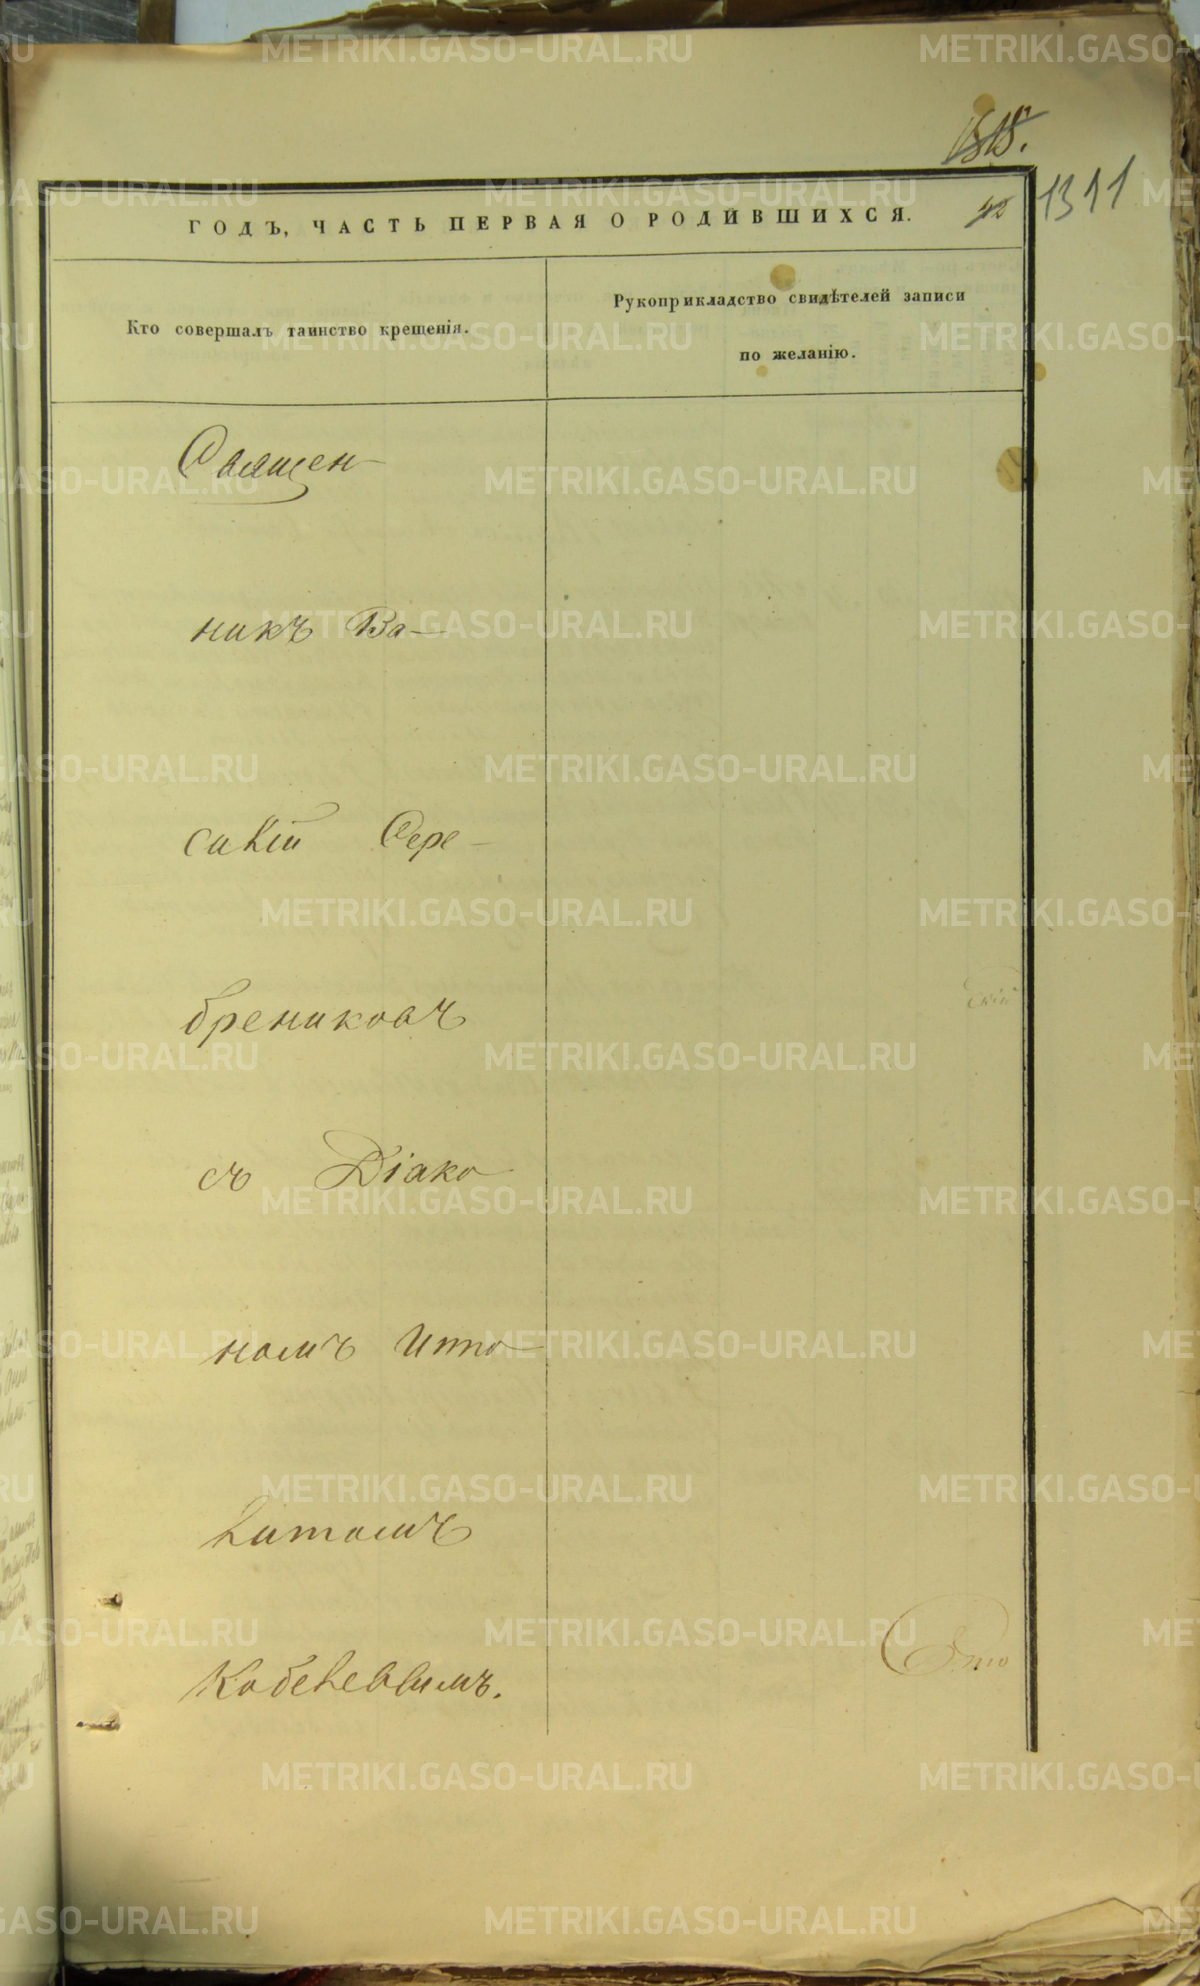 1311
ГОДЪ, ЧАСТЬ ПЕРВАЯ О РОДИВШИХСЯ.
Кто совершалъ таинство крещенія.
Рукоприкладство свидѣтелей записи
по желанію.
Священ-
никъ Ва-
силій Сере-
брениковъ
съ Діако
номъ Иппо
литомъ
Кобелевымъ.
METRIKI.GASO-URAL.RU